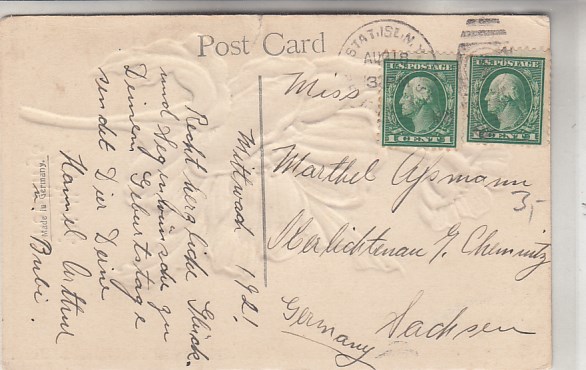 Post Card
STAT. ISL. N.Y.
AUG 18
3
U.S. POSTAGE
1 CENT 1
U.S. POSTAGE
1 CENT 1
Miss
Marthel Assmann
3,-
Oberlichtenau /. Chemnitz
Sachsen
Germany
Mittwoch 192!
Recht herzliche Glück-
und Segenswünsche zu
Deinem Geburtstage
sendet Dir Deine
Hansel Arthur
u. Bubi.
Made in Germany.